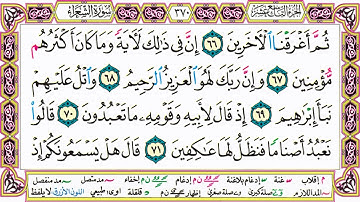 الجزء التاسع عشر ٣٧٠ سورة الشعراء
ثُمَّ أَغْرَقْنَا ٱلْأَخَرِينَ ٦٦ إِنَّ فِى ذَٰلِكَ لَأَيَةً وَمَا كَانَ أَكْثَرُهُم
مُّؤْمِنِينَ ٦٧ وَإِنَّ رَبَّكَ لَهُوَ ٱلْعَزِيزُ ٱلرَّحِيمُ ٦٨ وَٱتْلُ عَلَيْهِمْ
نَبَأَ إِبْرَٰهِيمَ ٦٩ إِذْ قَالَ لِأَبِيهِ وَقَوْمِهِۦ مَا تَعْبُدُونَ ٧٠ قَالُوا۟
نَعْبُدُ أَصْنَامًا فَنَظَلُّ لَهَا عَٰكِفِينَ ٧١ قَالَ هَلْ يَسْمَعُونَكُمْ إِذْ